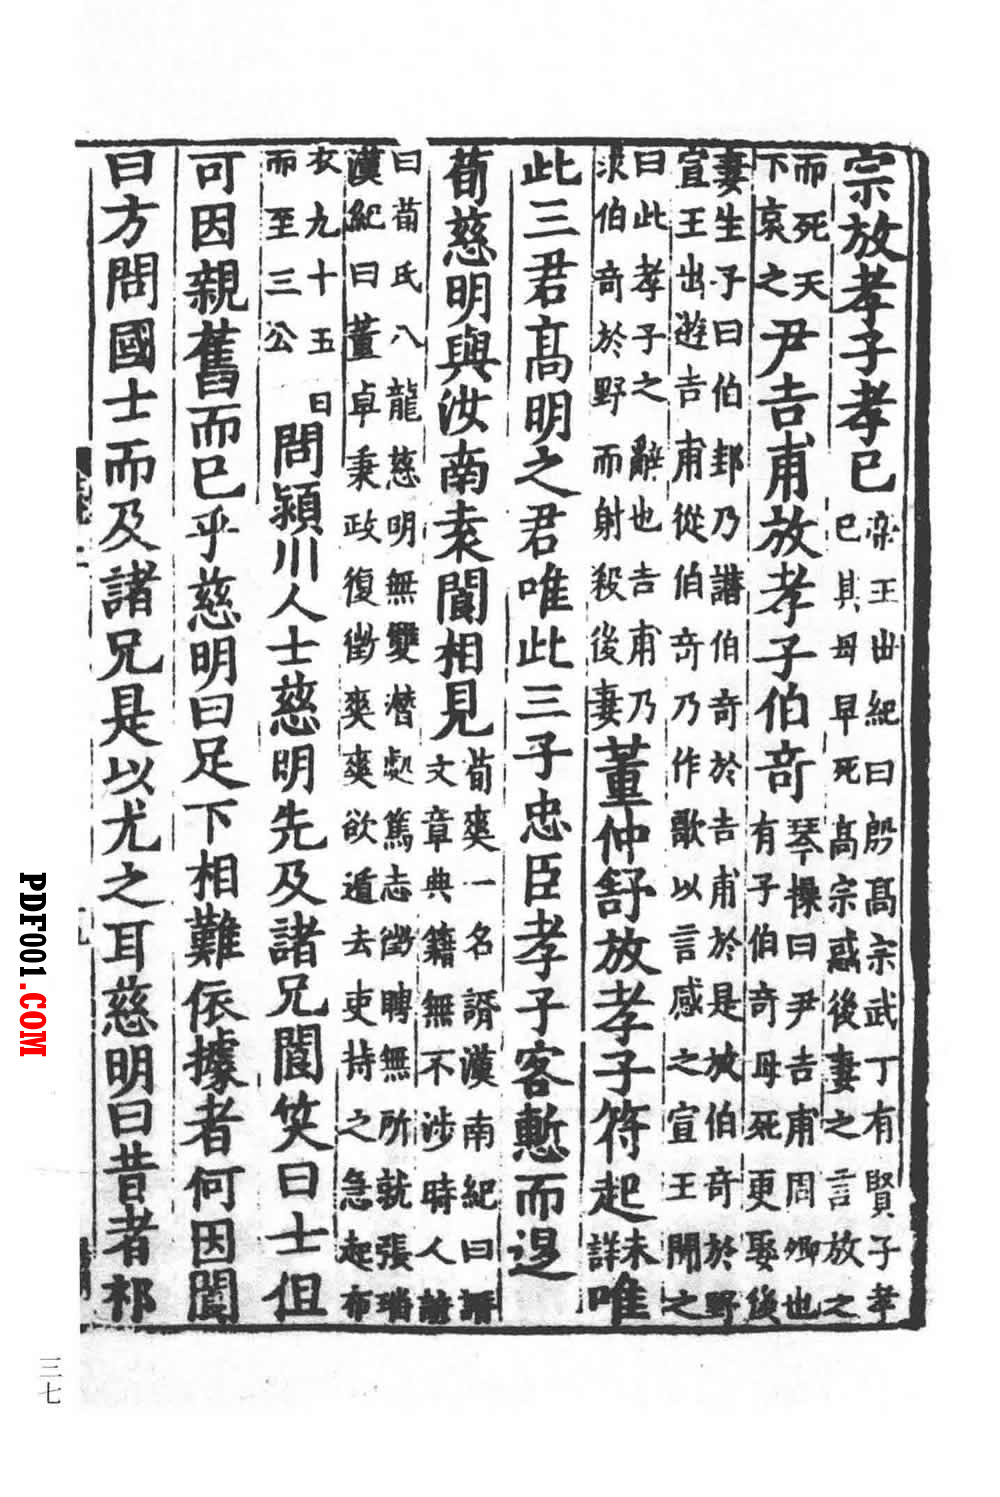 宗放孝子孝已帝王世紀曰殷高宗武丁有賢子孝已其母早死高宗惑後妻之言放之
而死天下哀之尹吉甫放孝子伯奇琴操曰尹吉甫周卿也有子伯奇母死更娶後
妻生子曰伯邽乃譖伯奇於吉甫於是放伯奇於野宣王出遊吉甫從伯奇乃作歌以言感之宣王聞之
曰此孝子之辭也吉甫乃求伯奇於野而射殺後妻董仲舒放孝子符起未詳唯
此三君髙明之君唯此三子忠臣孝子客慙而退
荀慈明與汝南袁閬相見荀爽一名諝漢南紀曰諝文章典籍無不涉時人諺
曰荀氏八龍慈明無雙潜處篤志徴聘無所就張璠漢紀曰董卓秉政復徴爽爽欲遁去吏持之急起布
衣九十五日而至三公問潁川人士慈明先及諸兄閬笑曰士但
可因親舊而已乎慈明曰足下相難依據者何因閬
曰方問國士而及諸兄是以尤之耳慈明曰昔者祁
三七
PDF001.COM